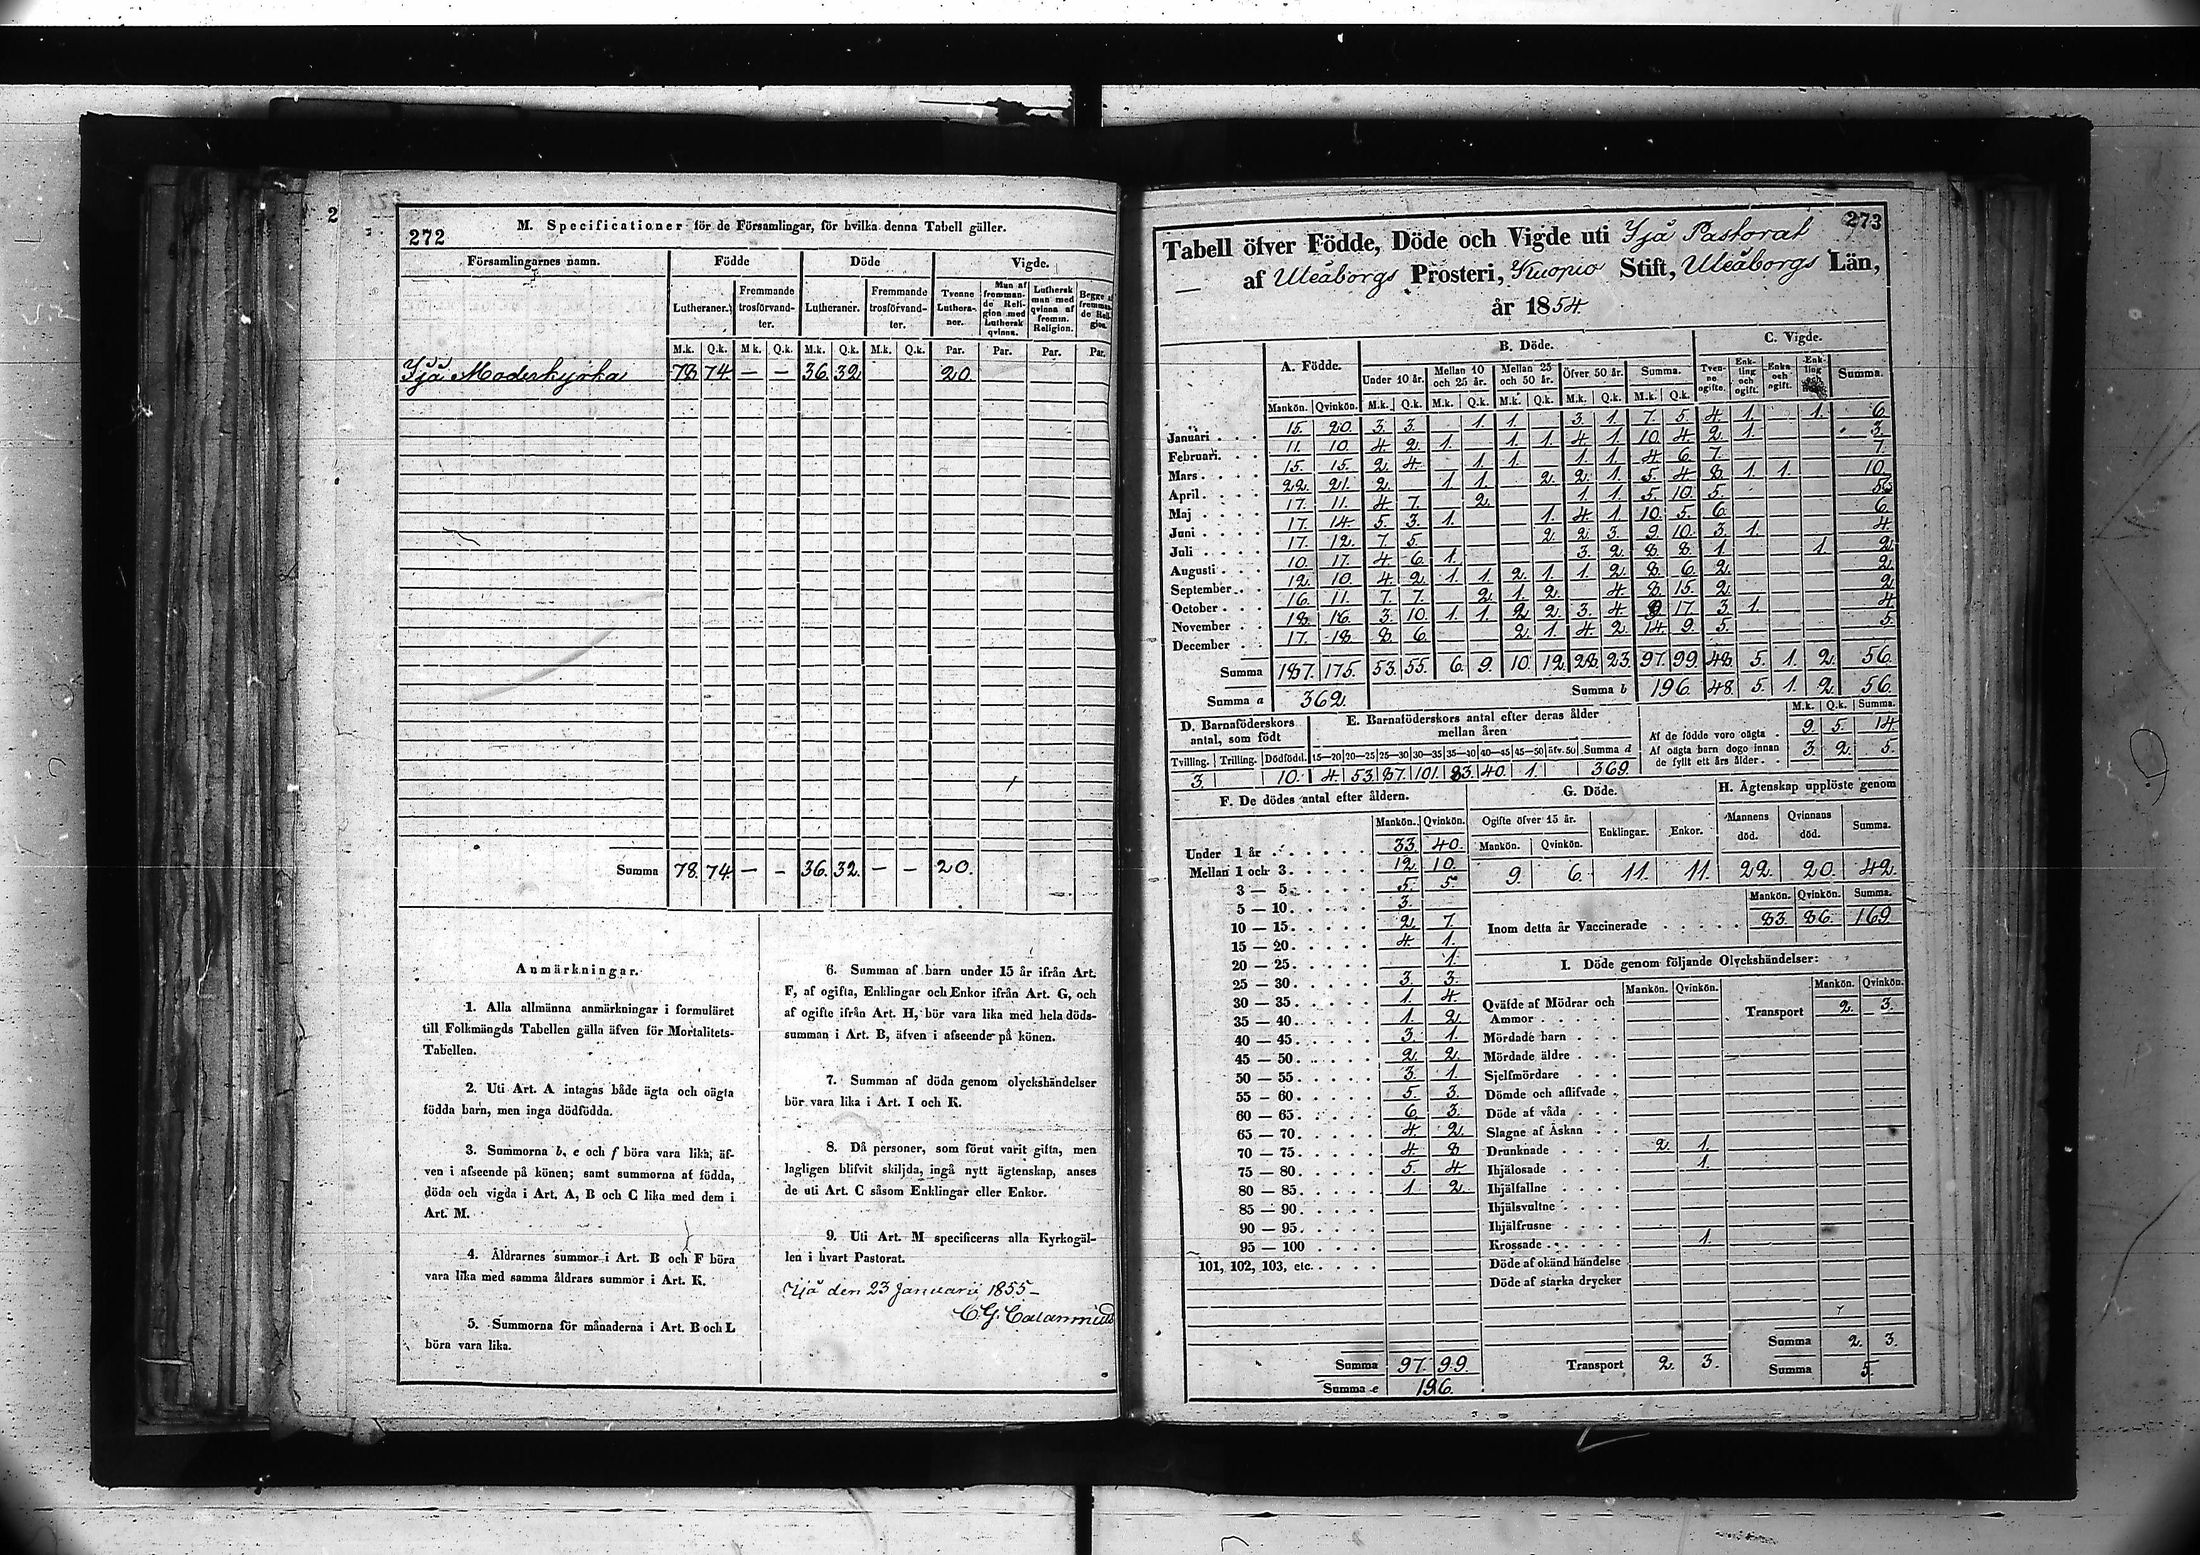 272
M. Specificationer för de Församlingar, för hvilka denna Tabell gäller.
Församlingarnes namn. Födde Döde Vigde.
Lutheraner. Fremmande trosförvandter. Lutheraner. Fremmande trosförvandter. Tvenne Lutheraner. Man af fremmande Religion med Luthersk qvinna. Luthersk man med qvinna af fremm. Religion. Begge af fremmande Religion.
M.k. Q.k. M.k. Q.k. M.k. Q.k. M.k. Q.k. Par. Par. Par. Par.
Ijå Moderkyrka 78 74 — — 36. 32 20.
Summa 78. 74. — - 36. 32. — — 20.
Anmärkningar.
1. Alla allmänna anmärkningar i formuläret
till Folkmängds Tabellen gälla äfven för Mortalitets-
Tabellen.
2. Uti Art. A intagas både ägta och oägta
födda barn, men inga dödfödda.
3. Summorna b, e och f böra vara lika, äf-
ven i afseende på könen; samt summorna af födda,
döda och vigda i Art. A, B och C lika med dem i
Art. M.
4. Åldrarnes summor i Art. B och F böra
vara lika med samma åldrars summor i Art. K.
5. Summorna för månaderna i Art. B och L
böra vara lika.
6. Summan af barn under 15 år ifrån Art.
F, af ogifta, Enklingar och Enkor ifrån Art. G, och
af ogifte ifrån Art. H, bör vara lika med hela döds-
summan i Art. B, äfven i afseende på könen.
7. Summan af döda genom olyckshändelser
bör vara lika i Art. I och K.
8. Då personer, som förut varit gifta, men
lagligen blifvit skiljda, ingå nytt ägtenskap, anses
de uti Art. C såsom Enklingar eller Enkor.
9. Uti Art. M specificeras alla Kyrkogäl-
len i hvart Pastorat.
Ijå den 23 Januarii 1855 —
C. G. Calamnius
273
Tabell öfver Födde, Döde och Vigde uti Ijå Pastorat
af Uleåborgs Prosteri, Kuopio Stift, Uleåborgs Län,
år 1854.
A. Födde. B. Döde. C. Vigde.
Under 10 år. Mellan 10 och 25 år. Mellan 25 och 50 år. Öfver 50 år. Summa. Tvenne ogifte. Enkling och ogift. Enka och ogift. Enkling Summa.
Mankön. Qvinkön. M.k. Q.k. M.k. Q.k. M.k. Q.k. M.k. Q.k. M.k. Q.k.
Januari 15. 20. 3. 3. 1. 1. 3. 1. 7. 5. 4. 1. 1. 6
Februari 11. 10. 4. 2. 1. 1. 1. 4. 1. 10. 4. 2. 1. 3.
Mars 15. 15. 2. 4. 1. 1. 1. 1. 4. 6. 7. 7.
April 22. 21. 2. 1. 1. 2. 2. 1. 5. 4. 8. 1. 1. 10.
Maj 17. 11. 4. 7. 2. 1. 1. 5. 10. 5. 5
Juni 17. 14. 5. 3. 1. 1. 4. 1. 10. 5. 6. 6.
Juli 17. 12. 7. 5. 2. 2. 3. 9. 10. 3. 1. 4.
Augusti 10. 17. 4. 6. 1. 3. 2. 8. 8. 1. 1. 2.
September 12. 10. 4. 2. 1. 1. 2. 1. 1. 2. 8. 6. 2. 2.
October 16. 11. 7. 7. 2. 1. 2. 4. 8. 15. 2. 2.
November 18. 16. 3. 10. 1. 1. 2. 2. 3. 4. 9 17. 3. 1. 4.
December 17. 18. 8. 6. 2. 1. 4. 2. 14. 9. 5. 5.
Summa 187. 175. 53. 55. 6. 9. 10. 12. 28. 23. 97. 99. 48. 5. 1. 2. 56.
Summa a 362. Summa b 196. 48. 5. 1. 2. 56.
D. Barnaföderskors antal, som födt
Tvilling. Trilling. Dödfödd.
3. 10.
E. Barnaföderskors antal efter deras ålder mellan åren
15—20 20—25 25—30 30—35 35—40 40—45 45—50 öfv. 50 Summa d
4. 53. 87. 101. 83. 40. 1. 369.
M.k. Q.k. Summa.
Af de födde voro oägta 9. 5. 14.
Af oägta barn dogo innan de fyllt ett års ålder 3. 2. 5.
F. De dödes antal efter åldern.
Mankön. Qvinkön.
Under 1 år 33. 40.
Mellan 1 och 3. 12. 10.
3 — 5. 5. 5.
5 — 10. 3.
10 — 15. 2. 7.
15 — 20. 4. 1.
20 — 25. 1.
25 — 30. 3. 3.
30 — 35. 1. 4.
35 — 40. 1. 2.
40 — 45. 3. 1.
45 — 50. 2. 2.
50 — 55. 3. 1.
55 — 60. 5. 3.
60 — 65. 6. 3.
65 — 70. 4. 2.
70 — 75. 4. 8
75 — 80. 5. 4.
80 — 85. 1 2.
85 — 90.
90 — 95.
95 — 100
101, 102, 103, etc.
Summa 97. 99.
Summa e 196.
G. Döde.
Ogifte öfver 15 år. Enklingar. Enkor.
Mankön. Qvinkön.
9. 6. 11. 11.
H. Ägtenskap upplöste genom
Mannens död. Qvinnans död. Summa.
22. 20. 42.
Mankön. Qvinkön. Summa.
Inom detta år Vaccinerade 83. 86. 169.
I. Döde genom följande Olyckshändelser:
Mankön. Qvinkön. Mankön. Qvinkön.
Qväfde af Mödrar och Ammor
Transport 2. 3.
Mördade barn
Mördade äldre
Sjelfmördare
Dömde och aflifvade
Döde af våda
Slagne af Åskan
Drunknade 2. 1.
Ihjälosade 1.
Ihjälfallne
Ihjälsvultne
Ihjälfrusne
Krossade 1.
Döde af okänd händelse
Döde af starka drycker
Summa 2. 3.
Transport 2. 3. Summa 5.